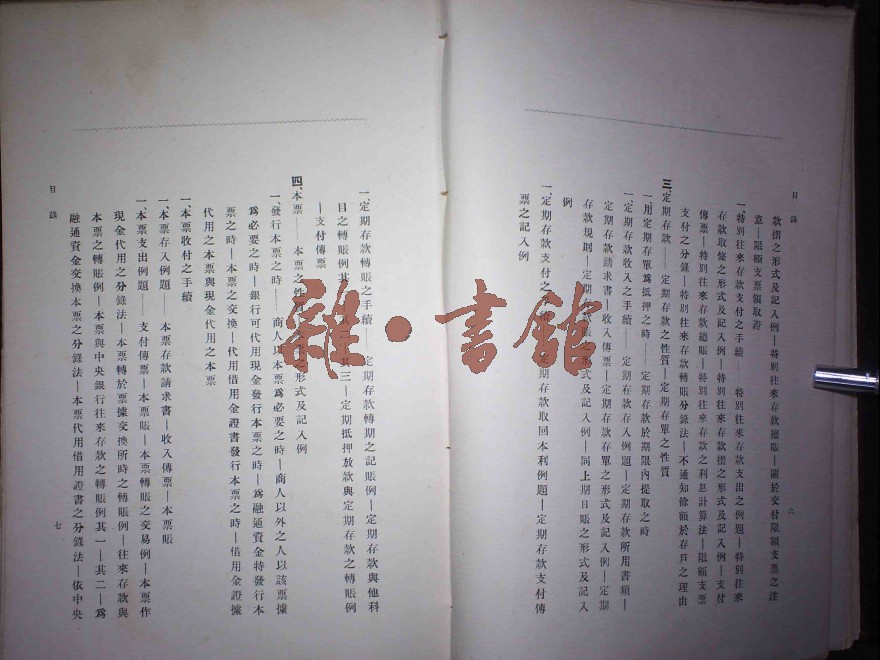 目錄
六
款摺之形式及記入例—特別往來存款總賬—關於交付限額支票之注
意—限額支票領取證
一、特別往來存款支付之手續……特別往來存款支出之例題—特別往來
存款取條之形式及記入例—特別往來存款摺之形式及記入例—支付
傳票—特別往來存款總賬—特別往來存款之利息計算法—限額支票
支付之分錄—特別往來存款轉賬分錄法—不通知餘額於存戶之理由
三、定期存款……定期存款之性質—定期存單之性質
一、用定期存單爲抵押之時……定期存款於期限內提取之時
一、定期存款收入之手續……定期存款存入例題—定期存款所用書類—
定期存款請求書—收入傳票—定期存款存單之形式及記入例—定期
存款規則—定期 賬 形式及記入例—同上期日賬之形式及記入
例
一、定期存款支付之 定期存款取回本利例題—定期存款支付傳
票之記入例
一、定期存款轉賬之手續……定期存款轉期之記賬例—定期存款與他科
目之轉賬例其 其三—定期抵押放款與定期存款之轉賬例
—支付傳票
四、本票……本票之性 之形式及記入例
一、發行本票之時……商人以本票爲必要之時—商人以外之人以該票據
爲必要之時—銀行可代用現金發行本票之時—爲融通資金特發行本
票之時—本票之交換—代用借用金證書發行本票之時—借用金證據
代用之本票與現金代用之本票
一、本票收付之手續
一、本票存入例題……本票存款請求書—收入傳票—本票賬
一、本票支出例題……支付傳票—本票賬—本票轉賬之交易例—本票作
現金代用之分錄法—本票轉於票據交換所時之轉賬例—往來存款與
本票之轉賬例—本票與中央銀行往來存款之轉賬例其一—其二—爲
融通資金交換本票之分錄法—本票代用借用證書之分錄法—依中央
目錄
七
雜·書館